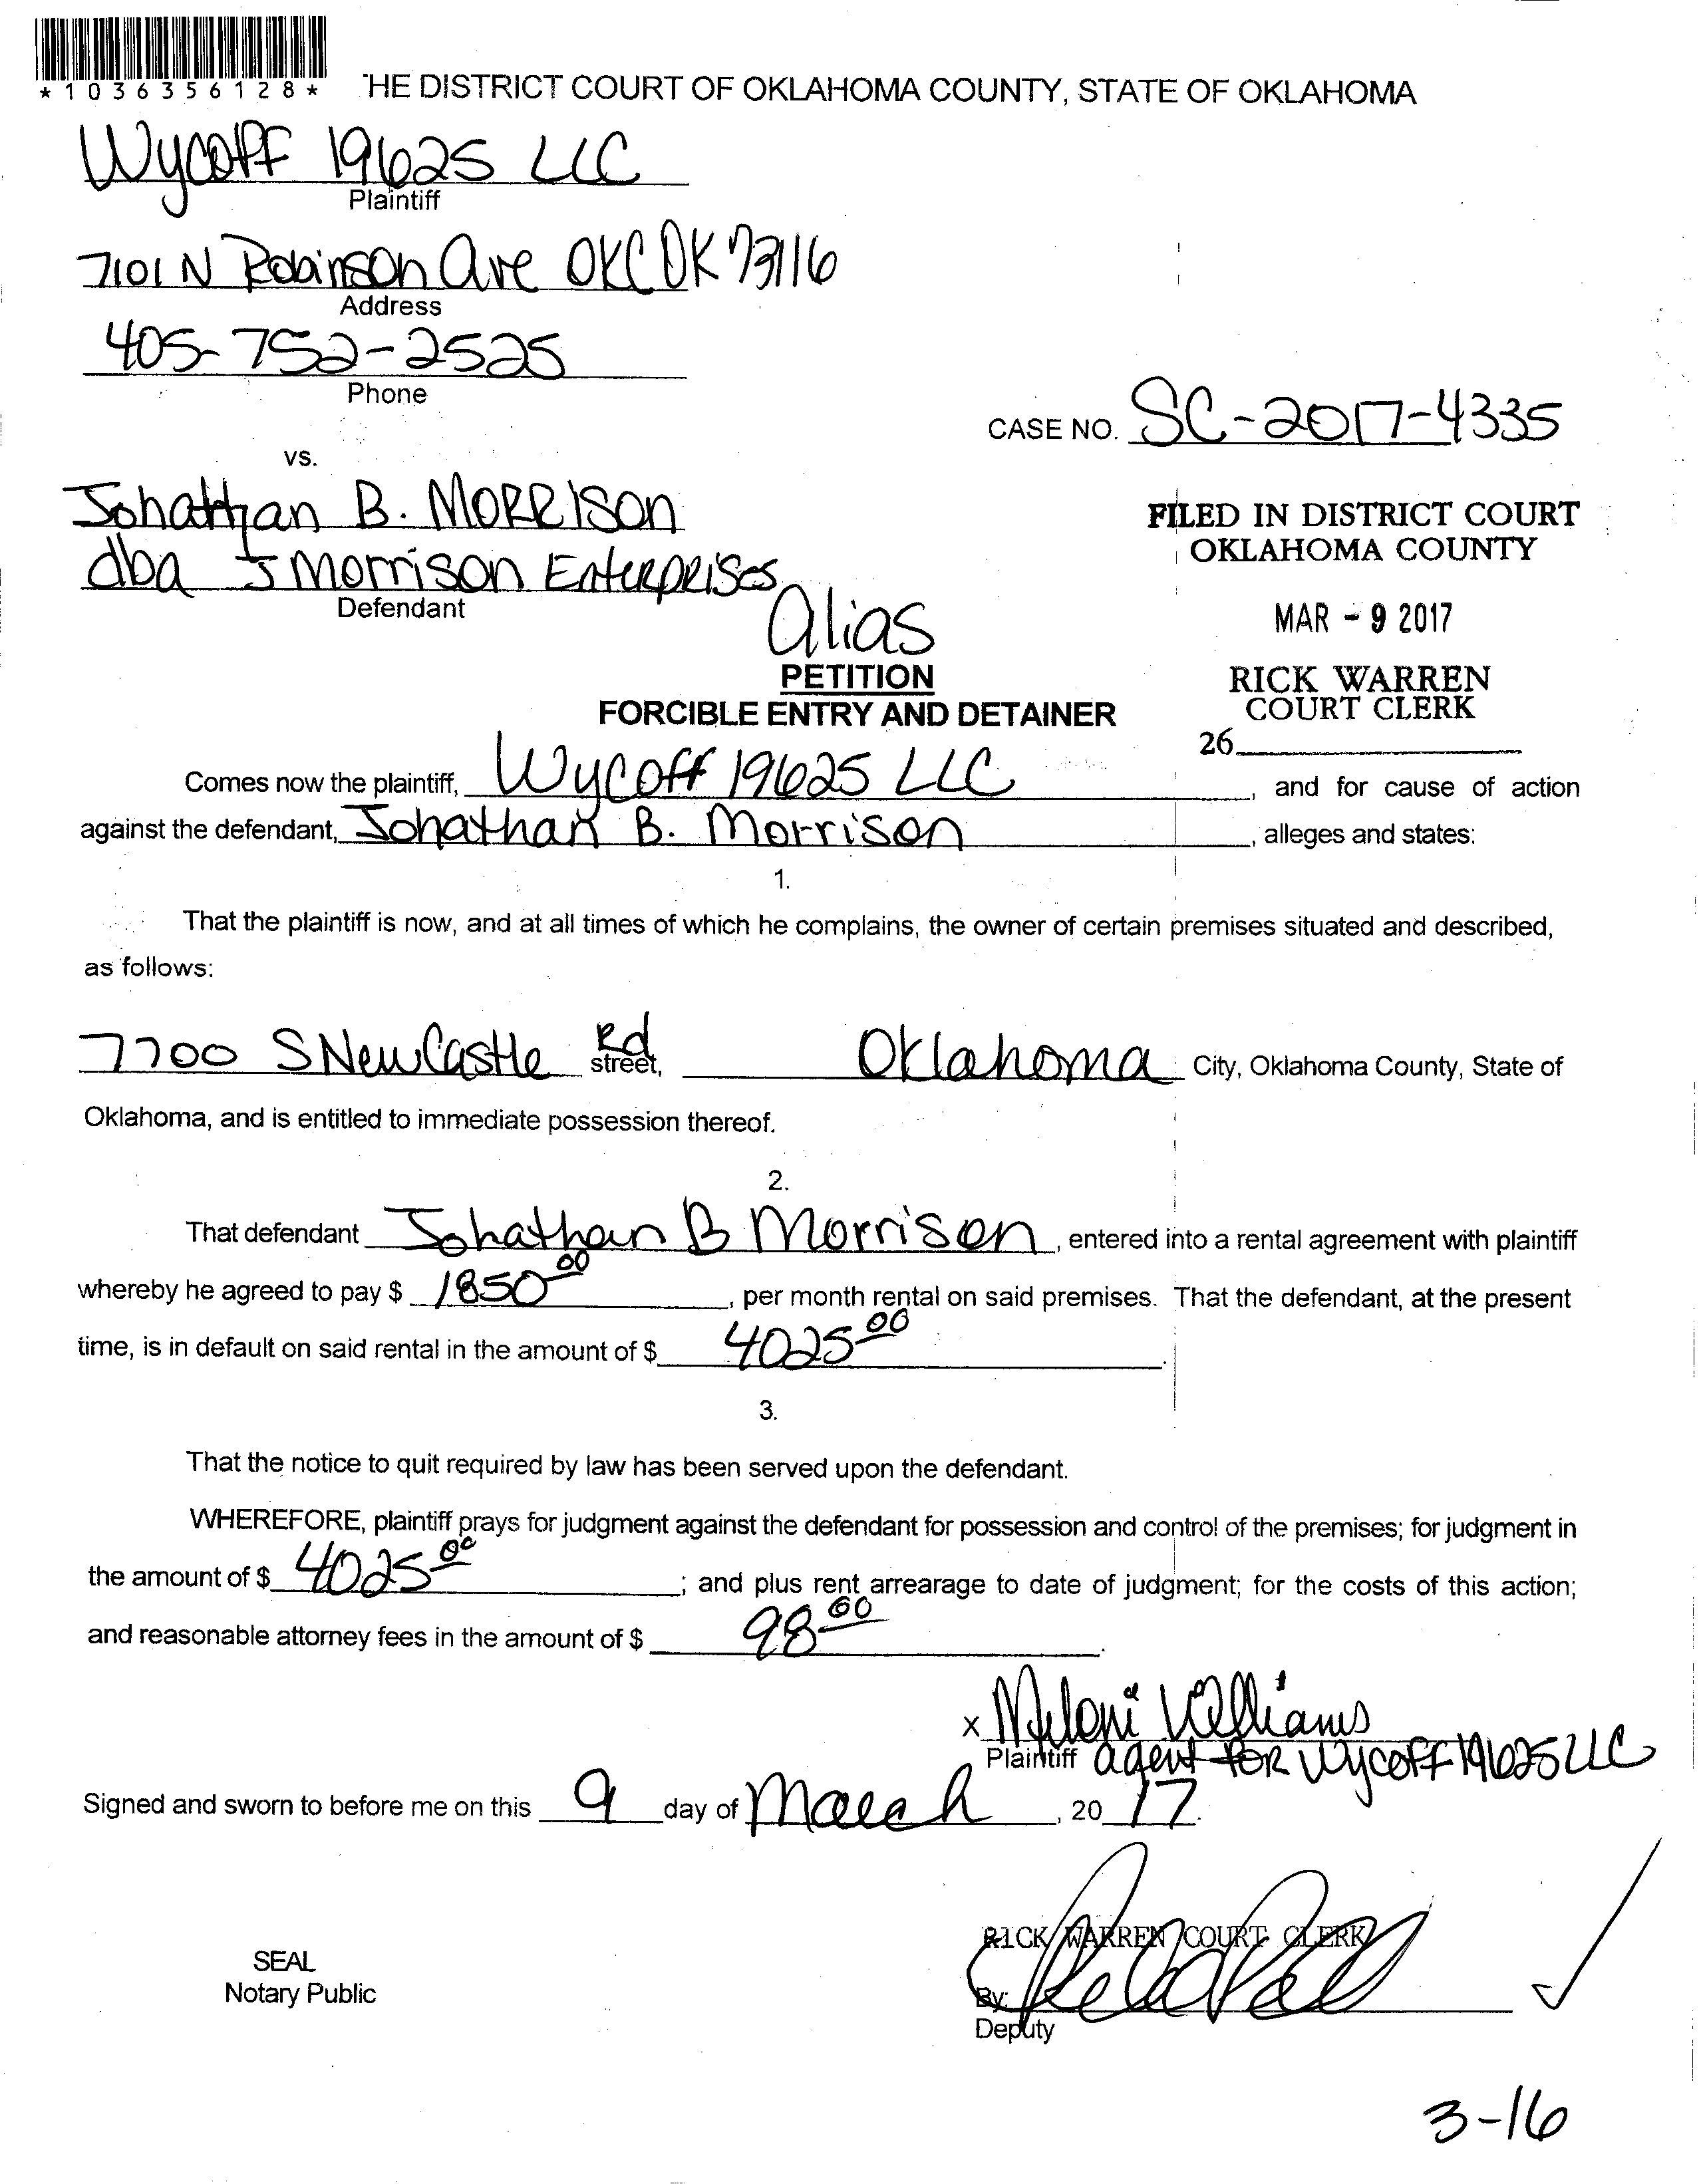 *1036356128*
HE DISTRICT COURT OF OKLAHOMA COUNTY, STATE OF OKLAHOMA
Wycoff 19625 LLC
Plaintiff
7101 N Robinson Ave OKC OK 73116
Address
405-752-2525
Phone
CASE NO. SC-2017-4335
vs.
Johathan B. Morrison
dba J Morrison Enterprises
Defendant
FILED IN DISTRICT COURT
OKLAHOMA COUNTY
MAR - 9 2017
RICK WARREN
COURT CLERK
26
Alias
PETITION
FORCIBLE ENTRY AND DETAINER
Comes now the plaintiff, Wycoff 19625 LLC, and for cause of action
against the defendant, Johathan B. Morrison, alleges and states:
1.
That the plaintiff is now, and at all times of which he complains, the owner of certain premises situated and described,
as follows:
7700 S NewCastle Rd street, Oklahoma City, Oklahoma County, State of
Oklahoma, and is entitled to immediate possession thereof.
2.
That defendant Johathan B Morrison, entered into a rental agreement with plaintiff
whereby he agreed to pay $ 1850 00, per month rental on said premises. That the defendant, at the present
time, is in default on said rental in the amount of $ 4025 00.
3.
That the notice to quit required by law has been served upon the defendant.
WHEREFORE, plaintiff prays for judgment against the defendant for possession and control of the premises; for judgment in
the amount of $ 4025 00; and plus rent arrearage to date of judgment; for the costs of this action;
and reasonable attorney fees in the amount of $ 98 00.
x Meloni Williams
Plaintiff agent for Wycoff 19625 LLC
Signed and sworn to before me on this 9 day of March, 2017.
RICK WARREN COURT CLERK
SEAL
Notary Public
By:
Deputy
3-16